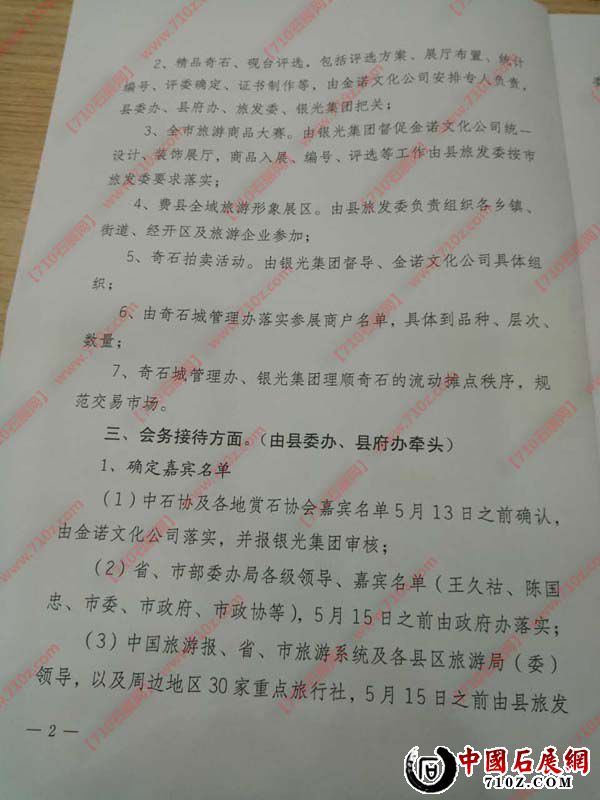 2、精品奇石、砚台评选，包括评选方案、展厅布置、统计
编号、评委确定、证书制作等，由金诺文化公司安排专人负责，
县委办、县府办、旅发委、银光集团把关；
3、全市旅游商品大赛。由银光集团督促金诺文化公司统一
设计、装饰展厅，商品入展、编号、评选等工作由县旅发委按市
旅发委要求落实；
4、费县全域旅游形象展区。由县旅发委负责组织各乡镇、
街道、经开区及旅游企业参加；
5、奇石拍卖活动。由银光集团督导、金诺文化公司具体组
织；
6、由奇石城管理办落实参展商户名单，具体到品种、层次、
数量；
7、奇石城管理办、银光集团理顺奇石的流动摊点秩序，规
范交易市场。
三、会务接待方面。（由县委办、县府办牵头）
1、确定嘉宾名单
（1）中石协及各地赏石协会嘉宾名单5月13日之前确认，
由金诺文化公司落实，并报银光集团审核；
（2）省、市部委办局各级领导、嘉宾名单（王久祜、陈国
忠、市委、市政府、市政协等），5月15日之前由政府办落实；
（3）中国旅游报、省、市旅游系统及各县区旅游局（委）
领导，以及周边地区30家重点旅行社，5月15日之前由县旅发
— 2 —
【710石展网】www.710z.com
中國石展網
710Z.COM